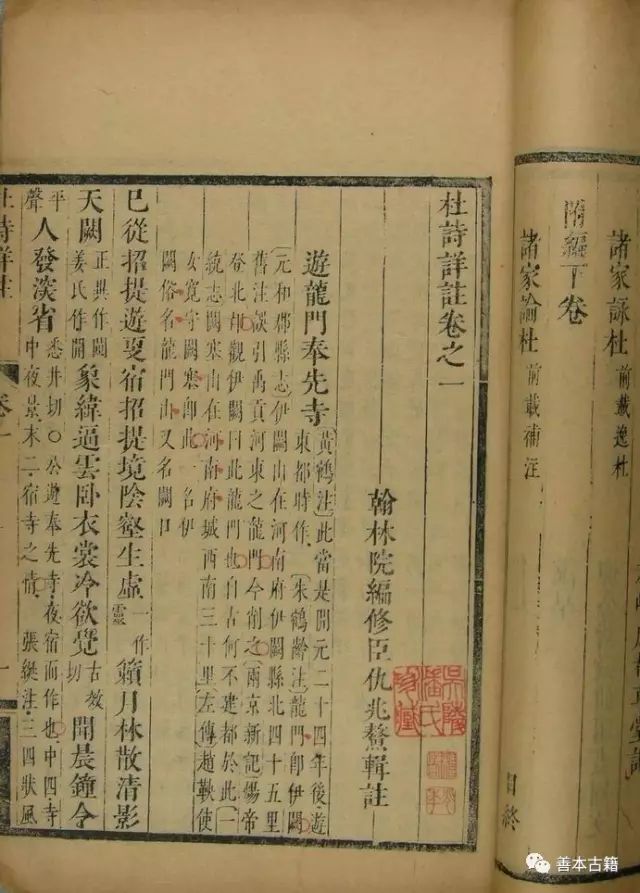 諸家詠杜 前載逸杜
附編下卷
諸家論杜 前載補注
目終
杜詩詳註卷之一
翰林院編修臣仇兆鰲輯註
遊龍門奉先寺
〔黃鶴注〕此當是開元二十四年後遊
東都時作〔朱鶴齡注〕龍門即伊闕
〔元和郡縣志〕伊闕山在河南府伊闕縣北四十五里
舊注誤引禹貢河東之龍門今削之〔兩京新記〕煬帝
登北邙觀伊闕曰此龍門也自古何不建都於此〔一
統志〕闕塞山在河南府城西南三十里〔左傳〕趙鞅使
女寬守闕塞即此一名伊
闕俗名龍門山又名闕口
已從招提遊更宿招提境陰壑生虛一作靈籟月林散清影
天闕正異作闚姜氏作開象緯逼雲臥衣裳冷欲覺古效切聞晨鐘令
平聲人發深省悉井切○公遊奉先寺夜宿而作也中四寺
中夜景末二宿寺之情 張綖注三四狀風
杜詩詳註 卷一 一
善本古籍